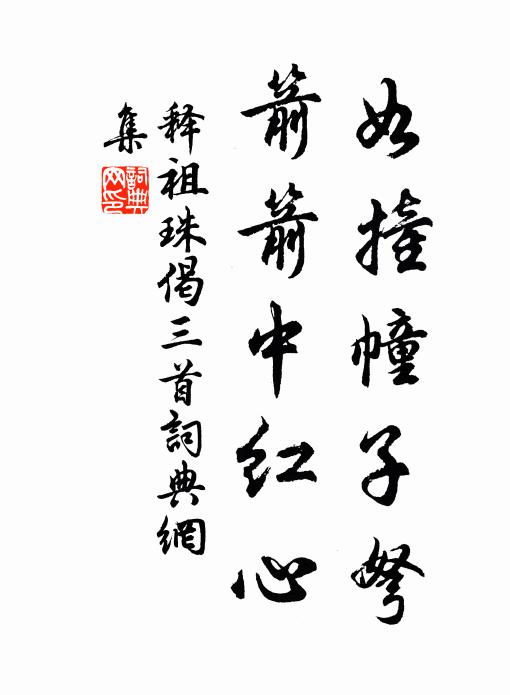 如撞幢子弩
箭箭中红心
释祖珠偈三首詞典網
集
詞典
网印